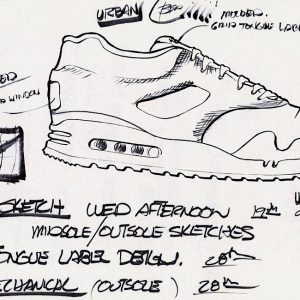 URBAN
MOLDED.
GRIP TONGUE LABE
WINDOW
SKETCH WED AFTERNOON 19th
MIDSOLE/OUTSOLE SKETCHES
ONGUE LABEL DESIGN. 26th
ECHANICAL (OUTSOLE) 28th